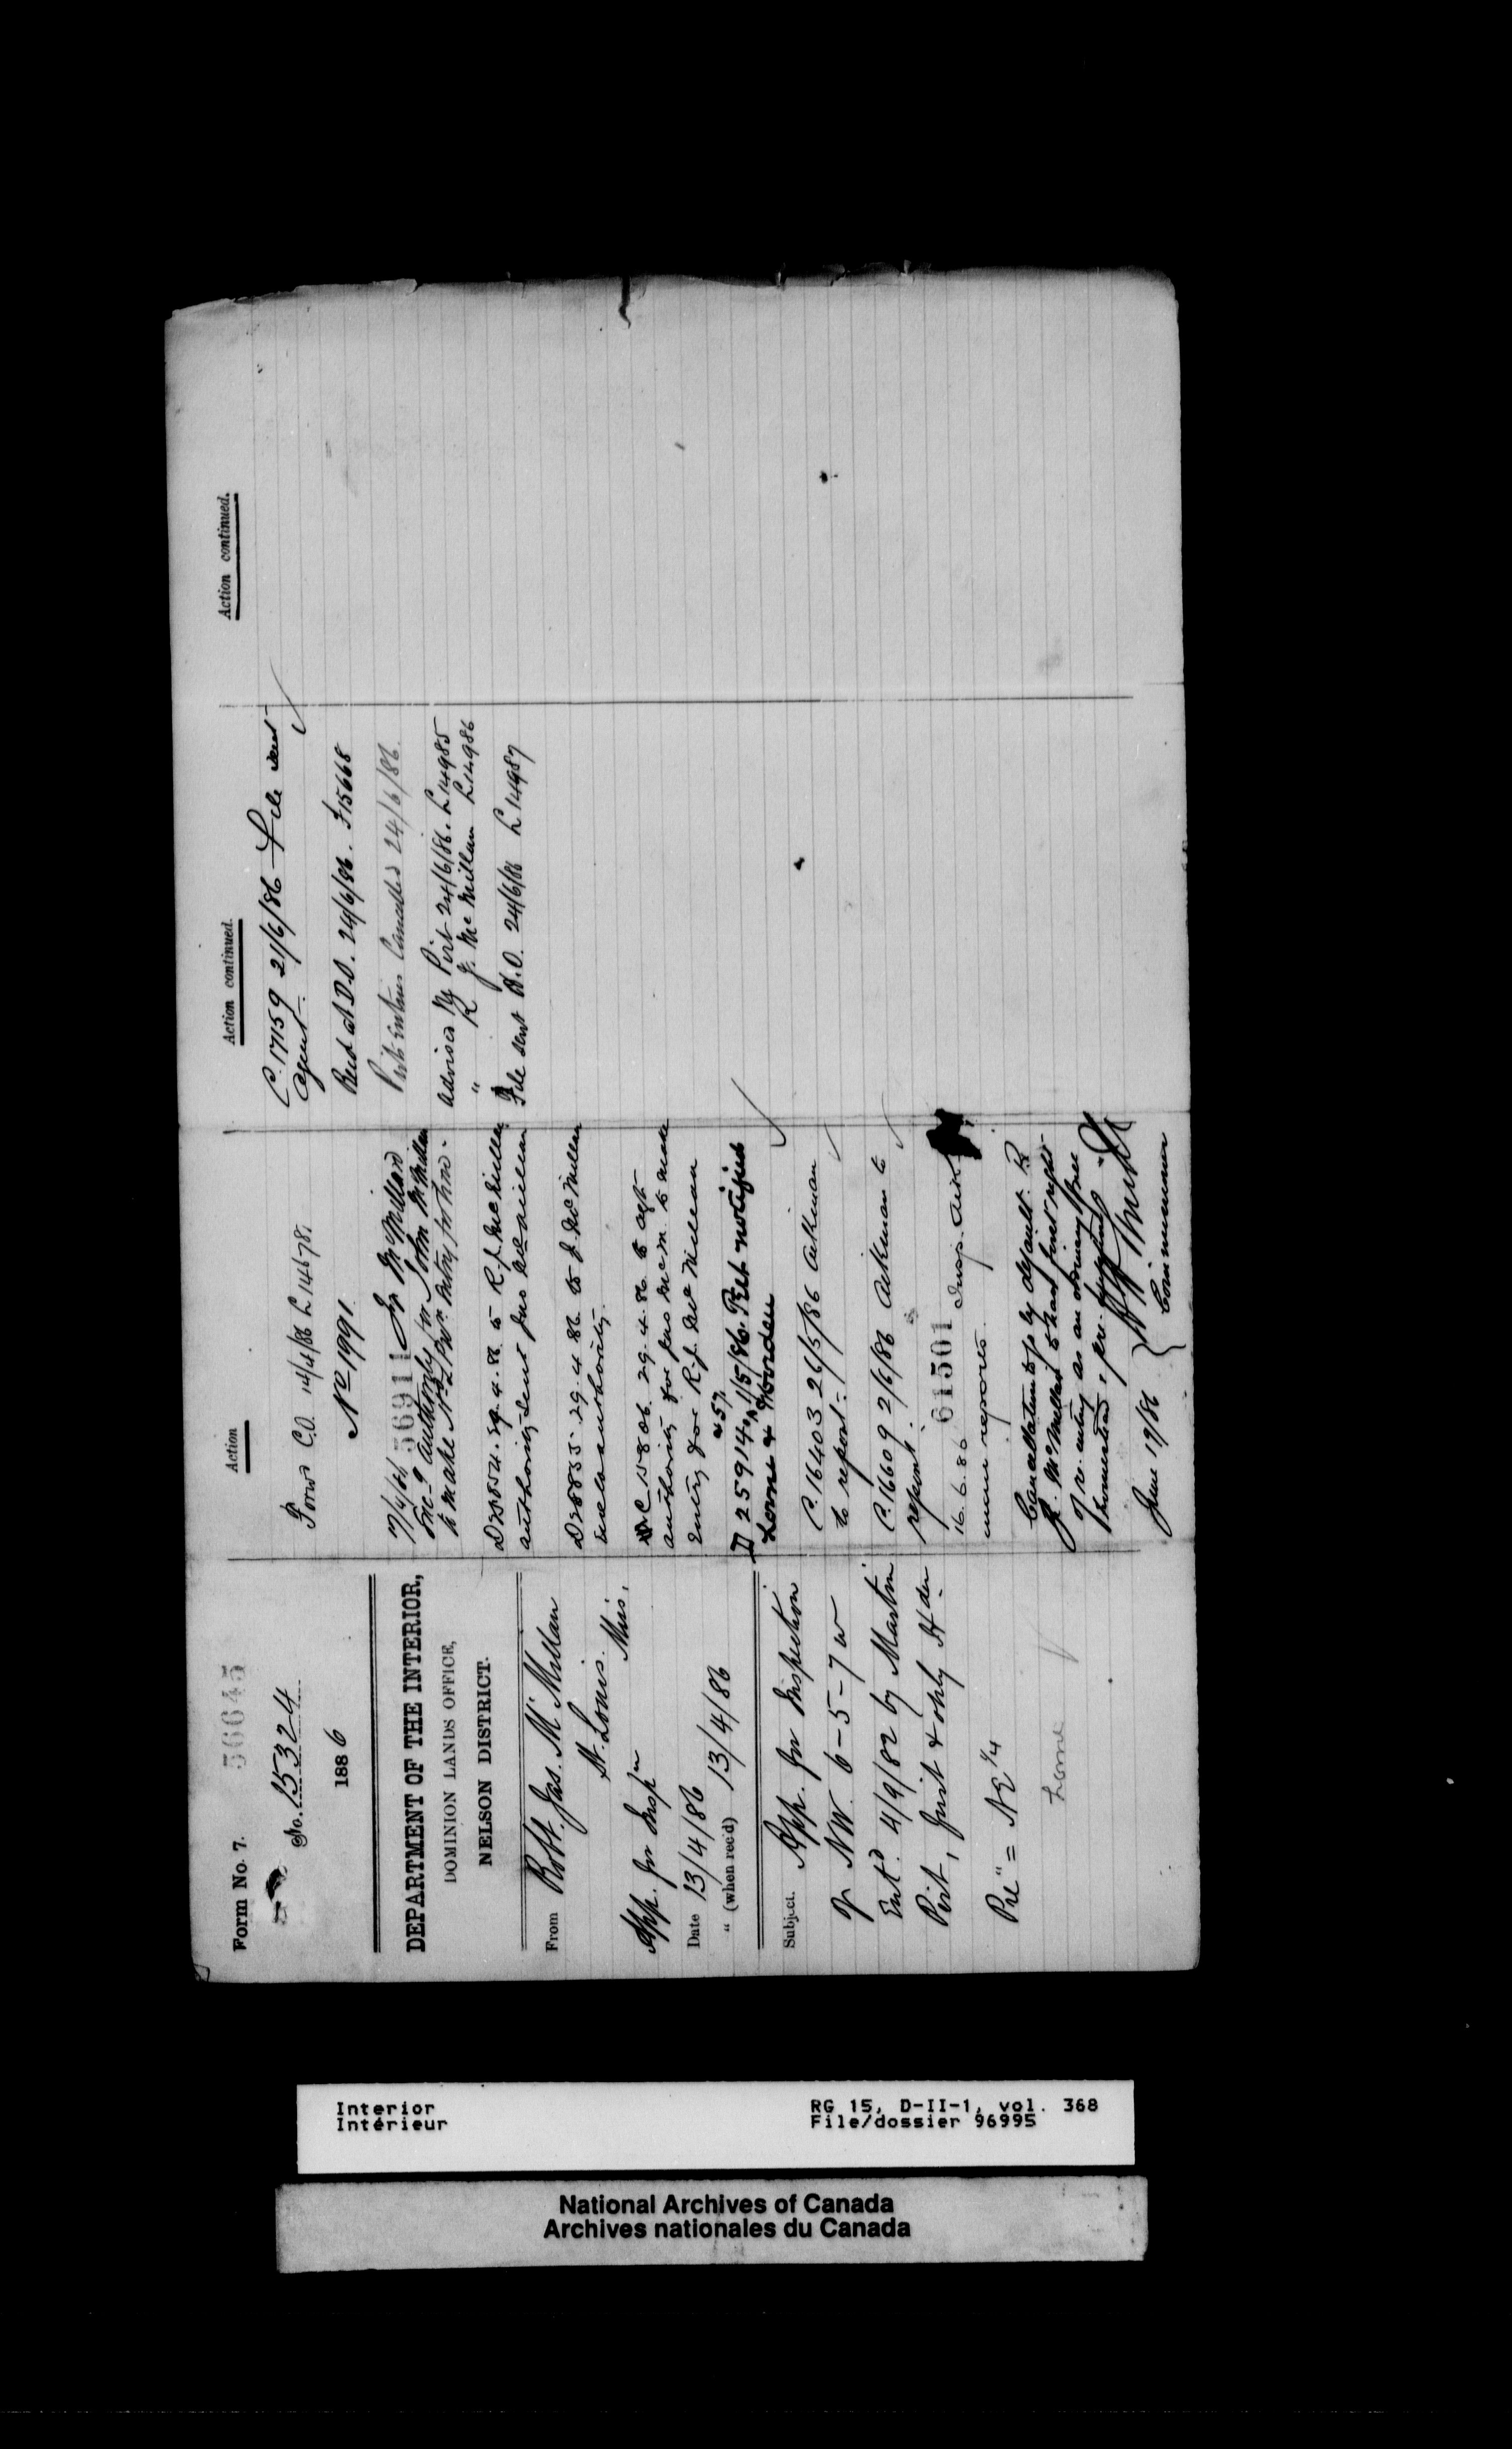 Form No. 7.
56645
No. 15324
1886
DEPARTMENT OF THE INTERIOR,
DOMINION LANDS OFFICE,
NELSON DISTRICT.
From Robt. Jas. McMillan
St. Louis. Mis,
App. for Inspn
Date 13/4/86
" (when rec'd) 13/4/86
Subject. App. for Inspection
of NW. 6-5-7 w
Entd. 4/9/82 by Martin
Pirt, Junt & only Hder
Pre" = NE 1/4
Lorne
Action
Forwd C.O. 14/4/86 L 14678.
No 1991
17/4/86 56911 Jn McMillard
Enc-g authority for John McMillan
to make Hd & Pre. Entry for him.
D28854. 29.4.86 to R. J. McMillan
authority sent Jno McMillan
D28855 29.4.86 to J. McMillan
enclo authority.
C 15806. 29.4.86 to agt
authority for Jno McM. to make
entry for R. J. McMillan
D 25914 & 57, 1/5/86. Pirt notified
Lorne & Morden
C. 16403 26/5/86 Aikman
to report.
C. 16609 2/6/86 Aikman to
report.
16.6.86 61501 Insp. Aik
man reports.
Cancellation to go by default. R
J. McMillan to have first right
of re. entry as an ordinary
homestead, pre.
June 19/86
Commissioner
Action continued.
C. 17159 21/6/86 File sent
Agent.
Recd at D.O. 24/6/86. F15668
Pirt's Entries Cancelled 24/6/86.
Advised M Pirt 24/6/86. L14985
" R J. McMillan L14986
File sent H.O. 24/6/86 L 14987
Action continued.
Interior
Intérieur
RG 15, D-II-1, vol. 368
File/dossier 96995
National Archives of Canada
Archives nationales du Canada